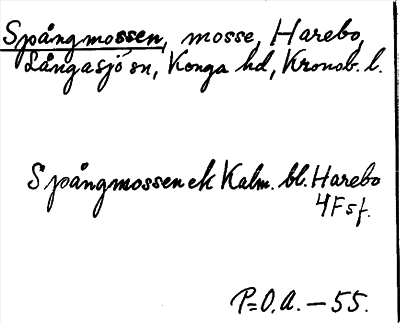 Spångmossen, mosse, Harebo,
Långasjö sn, Konga hd, Kronob. l.
Spångmossen ek Kalm. bl. Harebo
4F5f.
P=O.A. — 55.